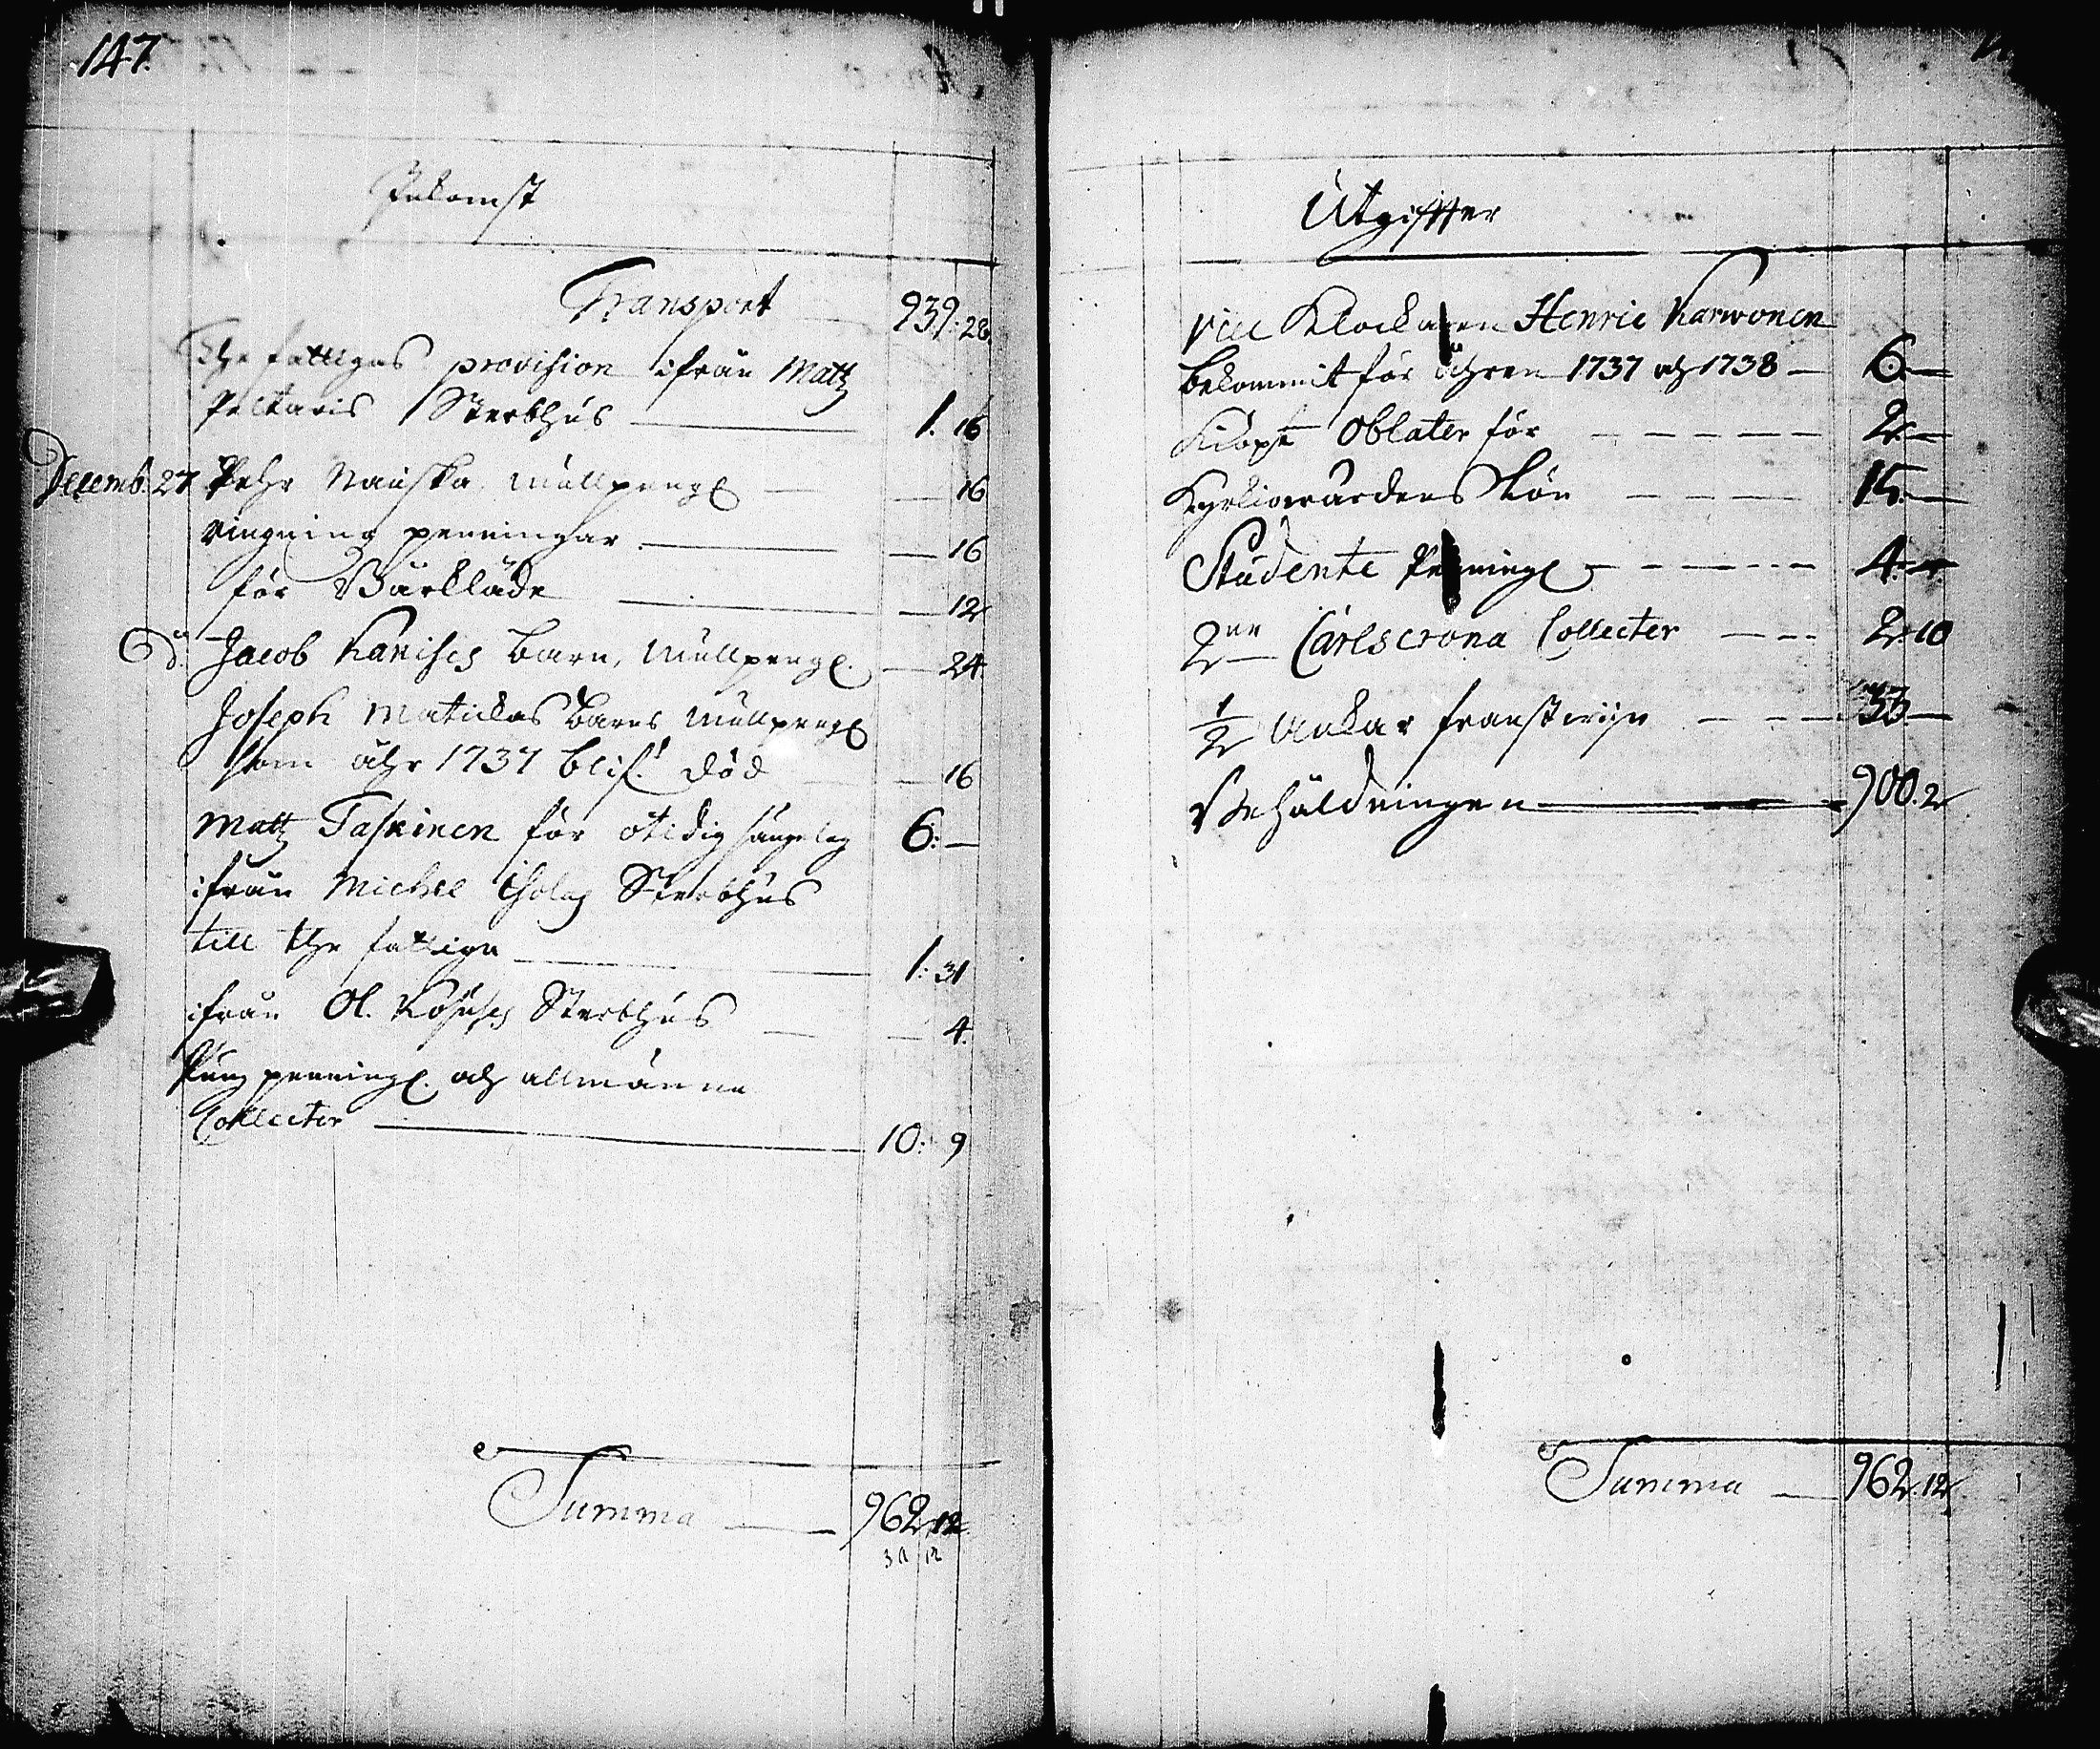 147.
Inkomst
Transport 939: 28
The fattigas provision ifrån Matz
Peltaris Sterbhus 1. 16
Decemb. 27 Pehr Nauska mullpeng. 16
ringning penningar 16
för Bårkläde 12
d. Jacob Kanises barn, mullpeng. 24.
Joseph Matickas barns mullpeng.
som åhr 1737 blef. död 16
Matz Taskinen för otidig sängelag 6: —
ifrån Michel Iholas Sterbhus
till the fattiga 1: 31
ifrån Ol. Sterbhus 4.
Pung penning. och allmänna
Collecter 10: 9
Summa 962. 12
Utgiffter
Klockaren Henric Karwonen
bekommit för åhren 1737 och 1738 — 6. —
Kiöpt Oblater för 2. —
Kyrkiowärdens Lön 15. —
Studente Penning. 4. —
2ne Carlscrona Collecter 2. 10
1/2 Ankar franst wijn 33. —
Behåldningen 900. 2
Summa 962. 12